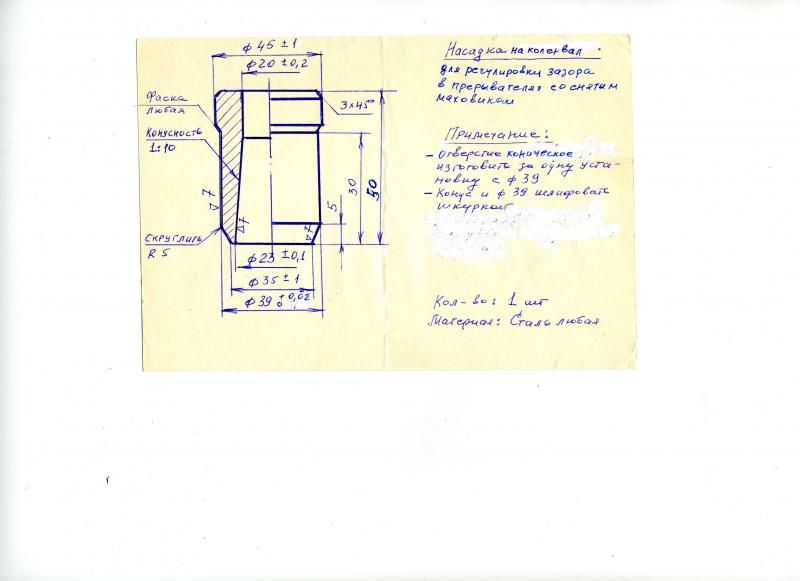 ф 45 ± 1
ф 20 ± 0,2
Фаска
любая
Конусность
1:10
3 x 45°
▽7
▽7
▽7
5
30
50
Скруглить
R 5
ф 23 ± 0,1
ф 35 ± 1
ф 39 ± 0,02
0
Насадка на коленвал
для регулировки зазора
в прерывателях со снятым
маховиком
Примечание:
– Отверстие коническое
изготовить за одну уста-
новку с ф 39
– Конус и ф 39 шлифовать
шкуркой
Кол-во: 1 шт
Материал: Сталь любая